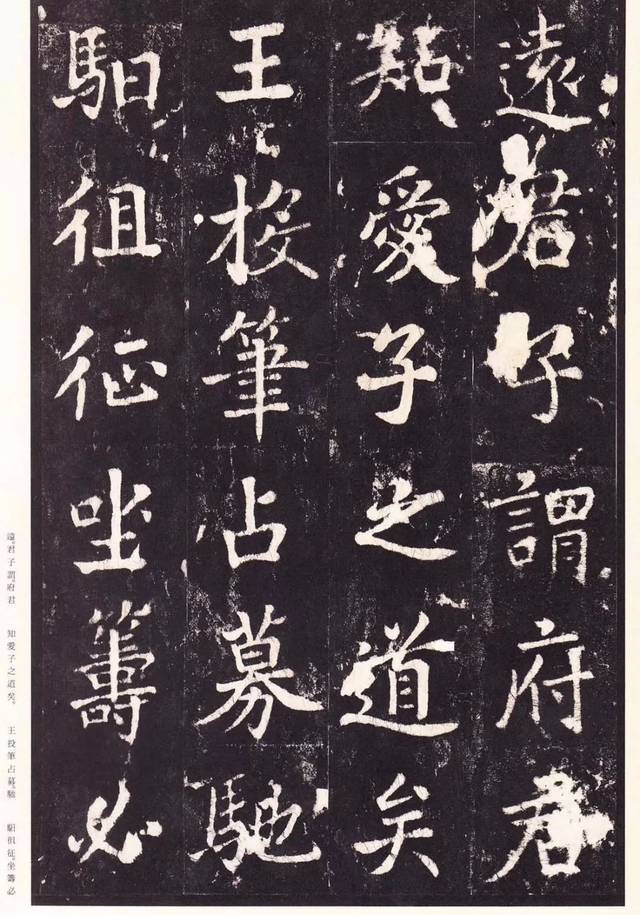 遠君子謂府君
知愛子之道矣
王投筆占募馳
馹徂征坐籌必
遠。君子謂。府君　知愛子之道矣。　王投筆占募。馳　馹徂征。坐籌必